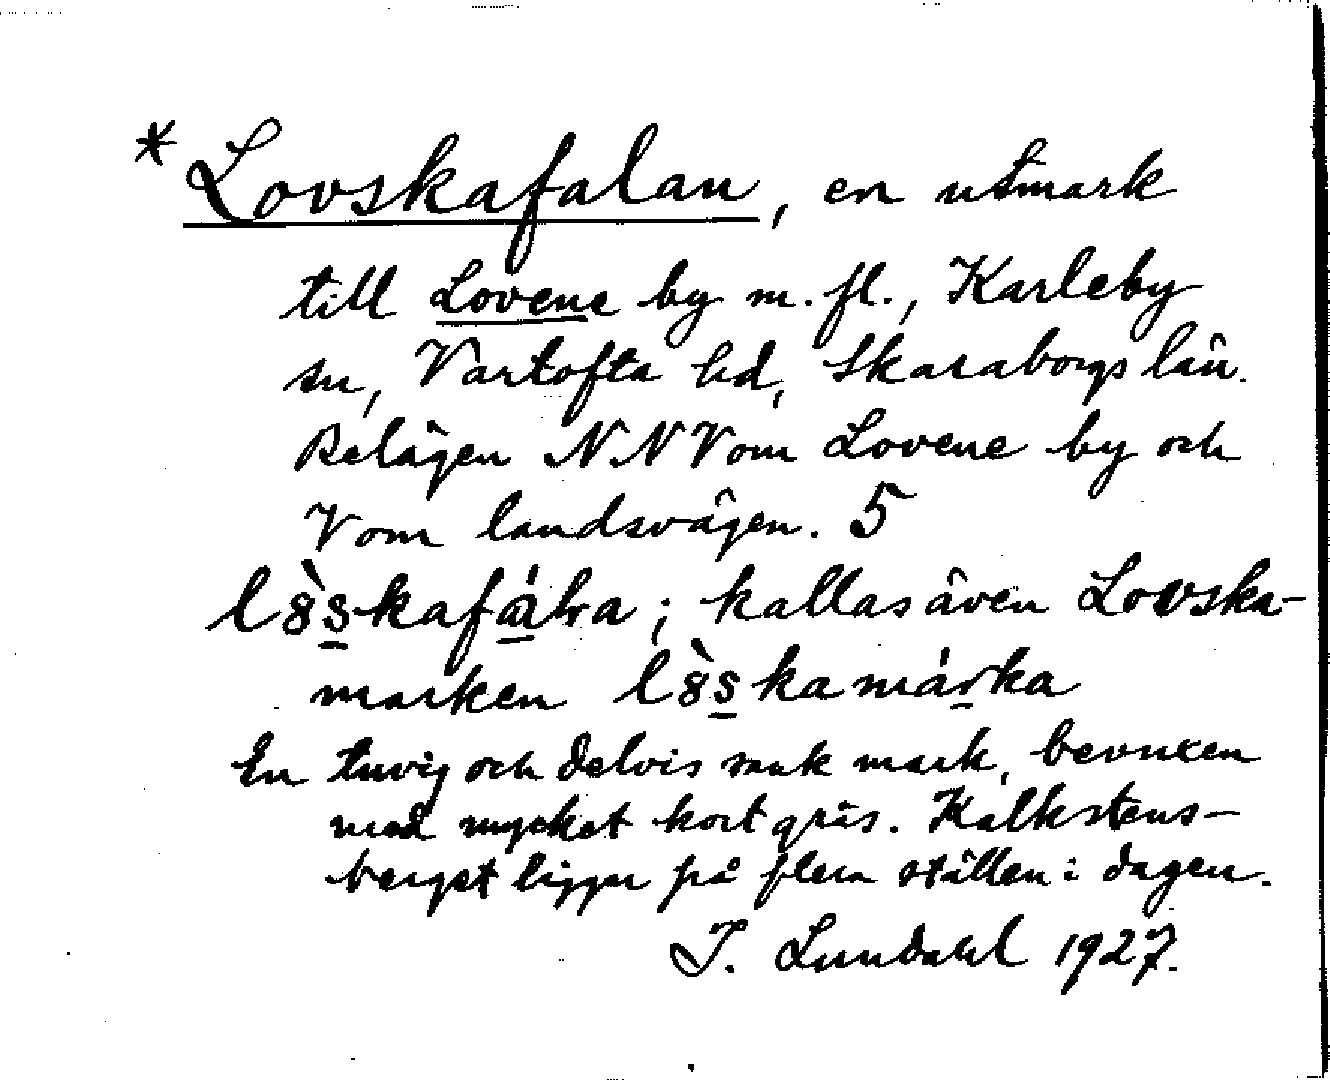 * Lovskafalan, en utmark
till Lovene by m. fl., Karleby
sn, Vartofta hd, Skaraborgs län.
Belägen N.N.V om Lovene by och
V om landsvägen. 5
kallas även Lovska-
marken
En tuvig och delvis sank mark, bevuxen
med mycket kort gräs. Kalkstens-
berget ligger på flera ställen i dagen.
I. Lundahl 1927.